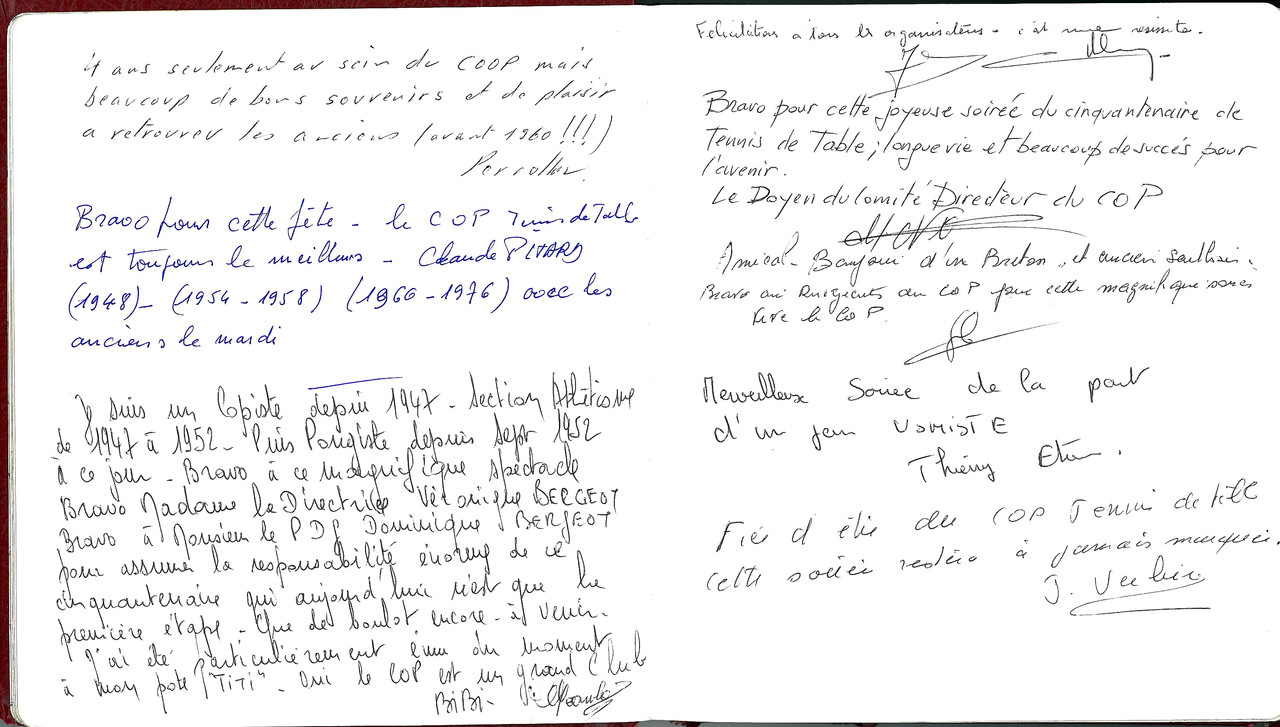 4 ans seulement au sein du COOP mais
beaucoup de bons souvenirs et de plaisir
a retrouver les anciens (avant 1960 !!!)
Bravo pour cette fête - le COP Tennis de Table
est toujours le meilleurs - Claude PIVARD
(1948) - (1954 - 1958) (1960 - 1976) avec les
anciens le mardi
Je suis un Copiste depuis 1947 - Section Athlétisme
de 1947 à 1952 - Puis Pongiste depuis Sept 1952
à ce jour - Bravo à ce magnifique spectacle
Bravo Madame la Directrice Véronique BERGEOT
Bravo à Monsieur le PDG Dominique BERGEOT
pour assumer la responsabilité énorme de ce
cinquantenaire qui aujourd'hui n'est que la
première étape - Que de boulot encore - à venir -
J'ai été particulièrement ému du moment
à mon pote "TiTi" - Oui le COP est un grand Club
BiBi -
Felicitation a tous les organisateurs - c'est une reussite.
Bravo pour cette joyeuse soirée du cinquantenaire de
Tennis de Table ; longue vie et beaucoup de succés pour
l'avenir.
Le Doyen du Comité Directeur du COP
Amical - Bonjour d'un Breton, et ancien
Bravo au Dirigeants du COP pour cette magnifique soirée
Vive le COP.
Merveilleux Soirée de la part
d'un jeun VOMISTE
Thierry
Fier d étre du COP Tennis de table
cette soirée restera à jamais marquée.
J.